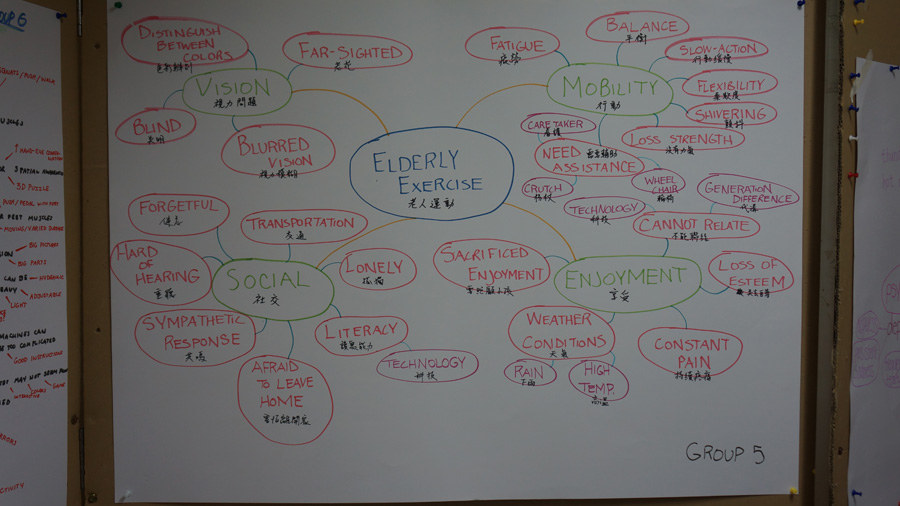 DISTINGUISH
BETWEEN
COLORS
FAR-SIGHTED
老花
VISION
視力問題
BLIND
失明
BLURRED
VISION
視力模糊
FATIGUE
疲勞
BALANCE
平衡
SLOW-ACTION
行動緩慢
MOBILITY
行動
FLEXIBILITY
柔軟度
SHIVERING
顫抖
CARE TAKER
看護
LOSS STRENGTH
沒有力氣
NEED
ASSISTANCE
需要輔助
CRUTCH
拐杖
WHEEL
CHAIR
輪椅
ELDERLY
EXERCISE
老人運動
TECHNOLOGY
科技
GENERATION
DIFFERENCE
代溝
CANNOT RELATE
FORGETFUL
健忘
TRANSPORTATION
交通
HARD
OF
HEARING
重聽
SOCIAL
社交
LONELY
孤獨
SYMPATHETIC
RESPONSE
共鳴
LITERACY
讀寫能力
TECHNOLOGY
科技
AFRAID
TO LEAVE
HOME
害怕離開家
SACRIFICED
ENJOYMENT
ENJOYMENT
享受
LOSS OF
ESTEEM
WEATHER
CONDITIONS
天氣
RAIN
下雨
HIGH
TEMP.
高溫
CONSTANT
PAIN
持續疼痛
GROUP 5
3D PUZZLE
BIG PARTS
LIGHT
GOOD INDICATIONS